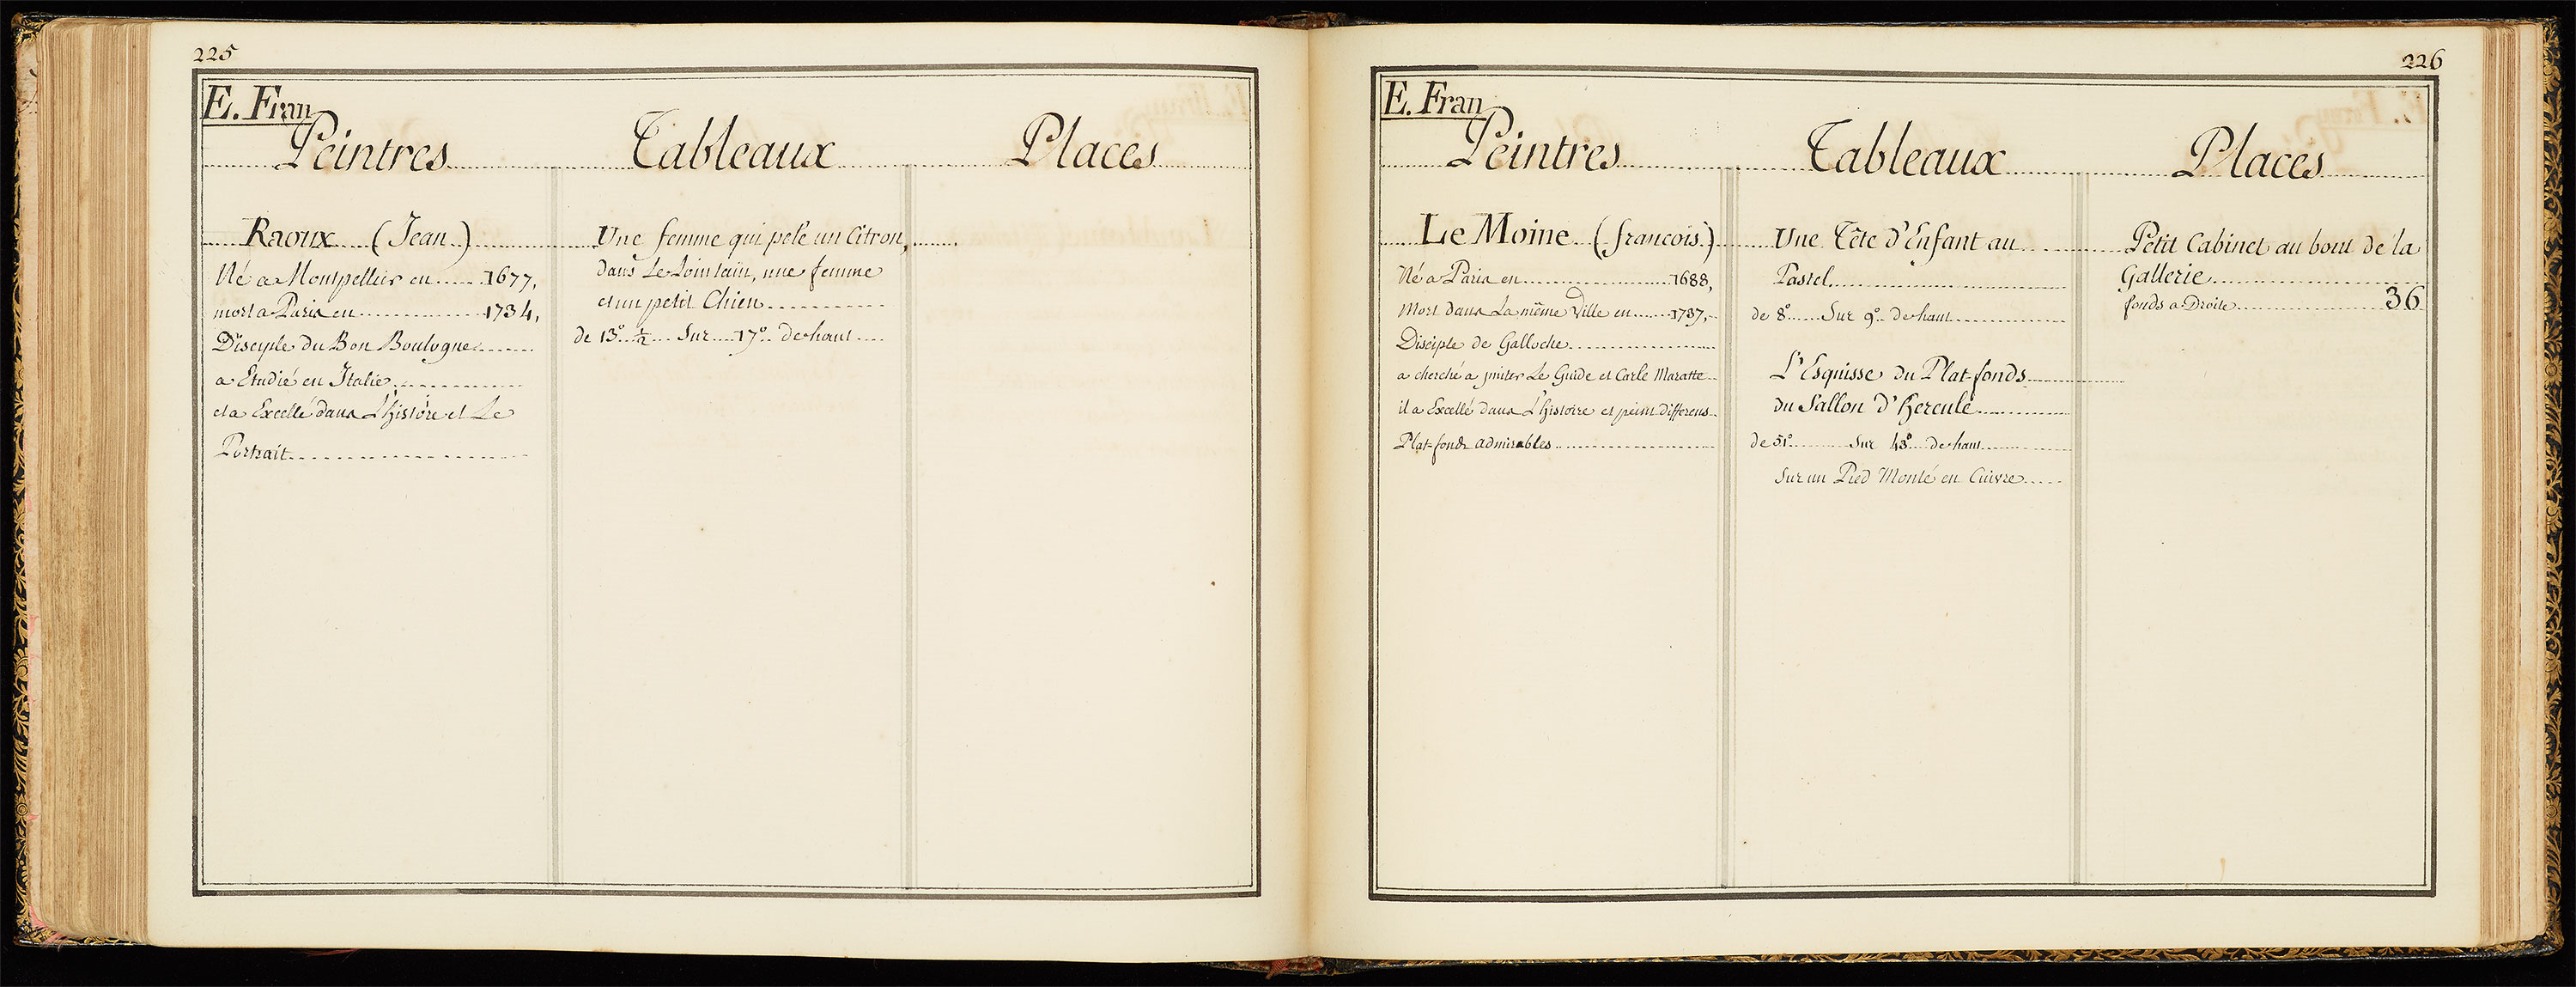 225
E. Fran
Peintres
Tableaux
Places
Raoux (Jean)
Né a Montpellier en 1677,
mort a Paris en 1734,
Disciple du Bon Boulogne
a Etudié en Italie
et a Excellé dans L'histoire et Le
Portrait
Une femme qui pele un Citron,
dans Le Lointain, une femme
et un petit Chien
de 13° ½ Sur 17° de haut
226
E. Fran
Peintres
Tableaux
Places
Le Moine (francois)
Né a Paris en 1688,
Mort dans La même Ville en 1737,
Disciple de Galloche
a cherché a imiter Le Guide et Carle Maratte
il a Excellé dans L'histoire et peint differens
Plat-fonds admirables
Une Tête d'Enfant au
Pastel
de 8° Sur 9° de haut
L'Esquisse du Plat-fonds
du Sallon d'Hercule
de 51° Sur 43° de haut
Sur un Pied Monté en Cuivre
Petit Cabinet au bout de la
Gallerie
fonds a Droite 36